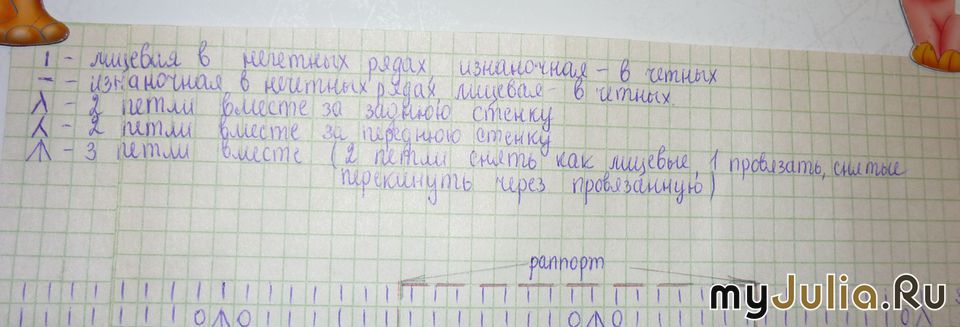 | - лицевая в нечетных рядах изнаночная - в четных
— - изнаночная в нечетных рядах лицевая - в четных.
⅄ - 2 петли вместе за заднюю стенку
⅄ - 2 петли вместе за переднюю стенку
/|\ - 3 петли вместе (2 петли снять как лицевые, 1 провязать, снятые
перекинуть через провязанную)
раппорт
myJulia.Ru